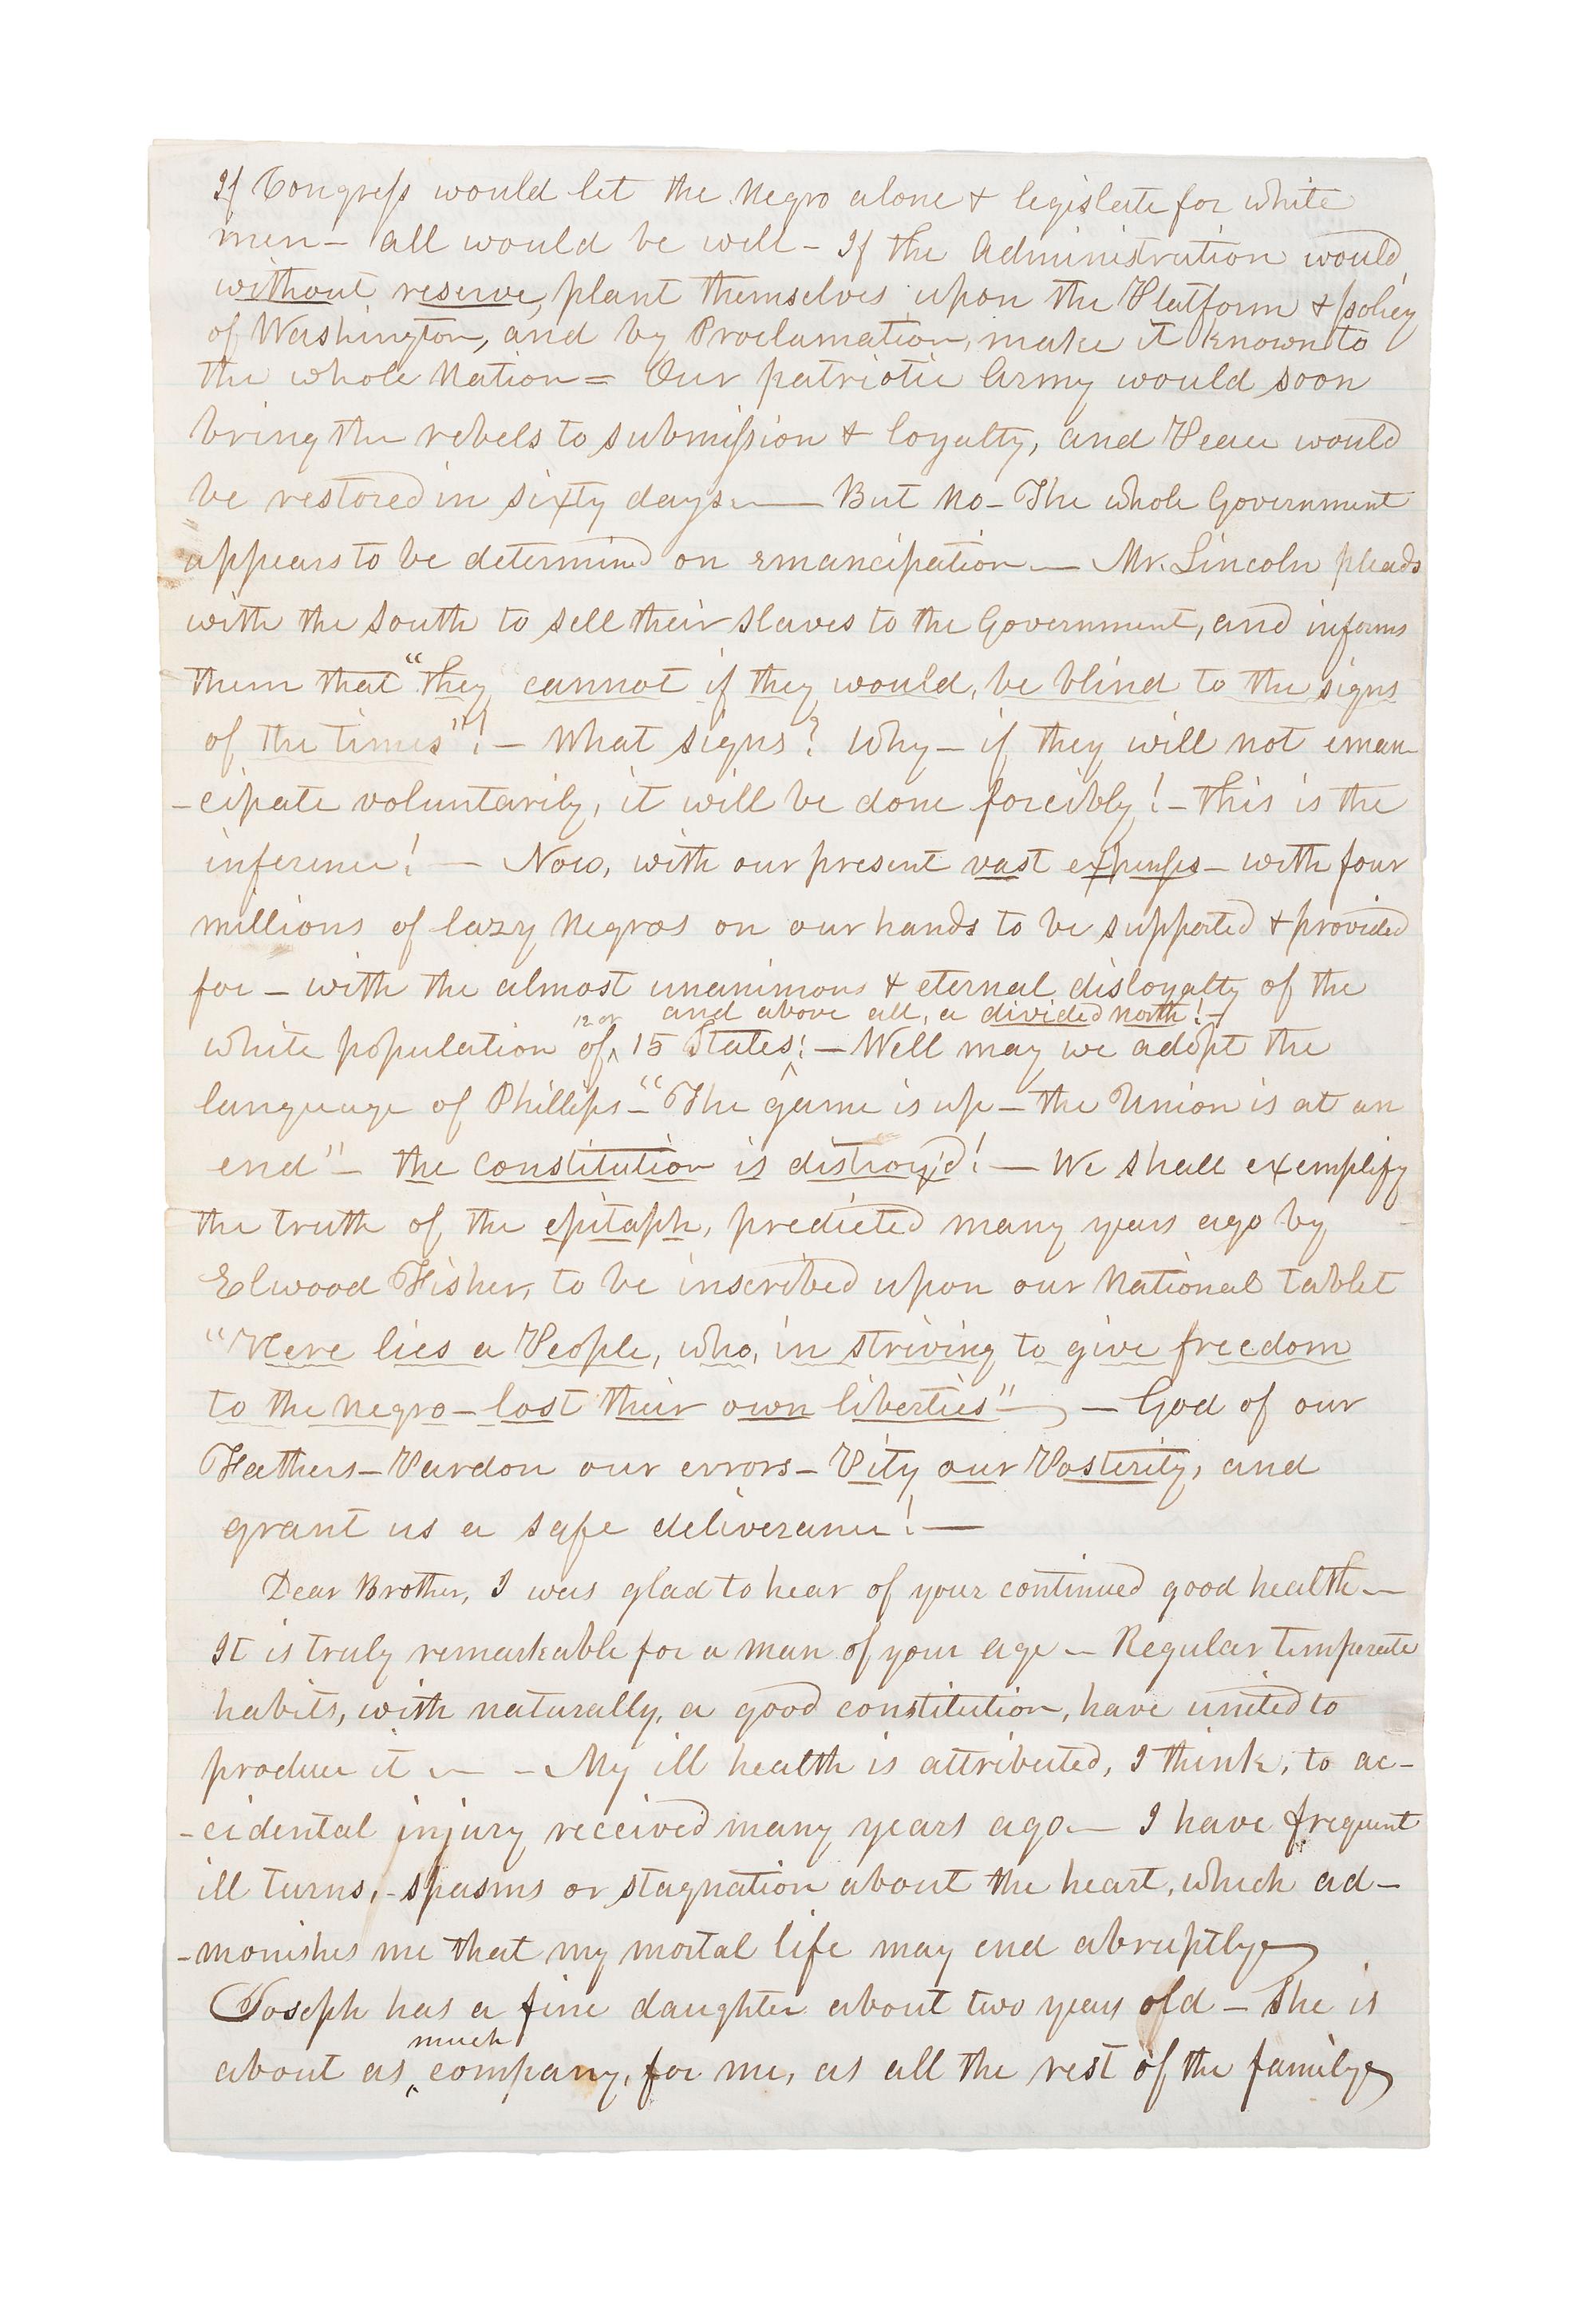 If Congress would let the Negro alone & legislate for white
men - all would be well - If the Administration would,
without reserve, plant themselves upon the Platform & policy
of Washington, and by Proclamation, make it known to
the whole Nation = Our patriotic Army would soon
bring the rebels to submission & loyalty, and Peace would
be restored in sixty days. — But No - The whole Government
appears to be determined on emancipation — Mr. Lincoln pleads
with the South to sell their slaves to the Government, and informs
them that "they cannot if they would, be blind to the signs
of the times"! - What signs? Why - if they will not eman-
-cipate voluntarily, it will be done forcibly! - This is the
inference! — Now, with our present vast expenses - with four
millions of lazy Negros on our hands to be supported & provided
for - with the almost unanimous & eternal disloyalty of the
12 or and above all, a divided North! -
white population of 15 States! - Well may we adopt the
language of Phillips - "The game is up - the Union is at an
end" - the constitution is distroy'd! — We shall exemplify
the truth of the epitaph, predicted many years ago by
Elwood Fisher, to be inscribed upon our National tablet
"Here lies a People, who, in striving to give freedom
to the Negro - lost their own liberties" — God of our
Fathers - Pardon our errors - Pity our Posterity, and
grant us a safe deliverance! —
Dear Brother, I was glad to hear of your continued good health —
It is truly remarkable for a man of your age — Regular temperate
habits, with naturally, a good constitution, have united to
produce it — - My ill health is attributed, I think, to ac-
-cidental injury received many years ago — I have frequent
ill turns, - spasms or stagnation about the heart, which ad-
-monishes me that my mortal life may end abruptly
Joseph has a fine daughter about two years old - She is
much
about as company, for me, as all the rest of the family